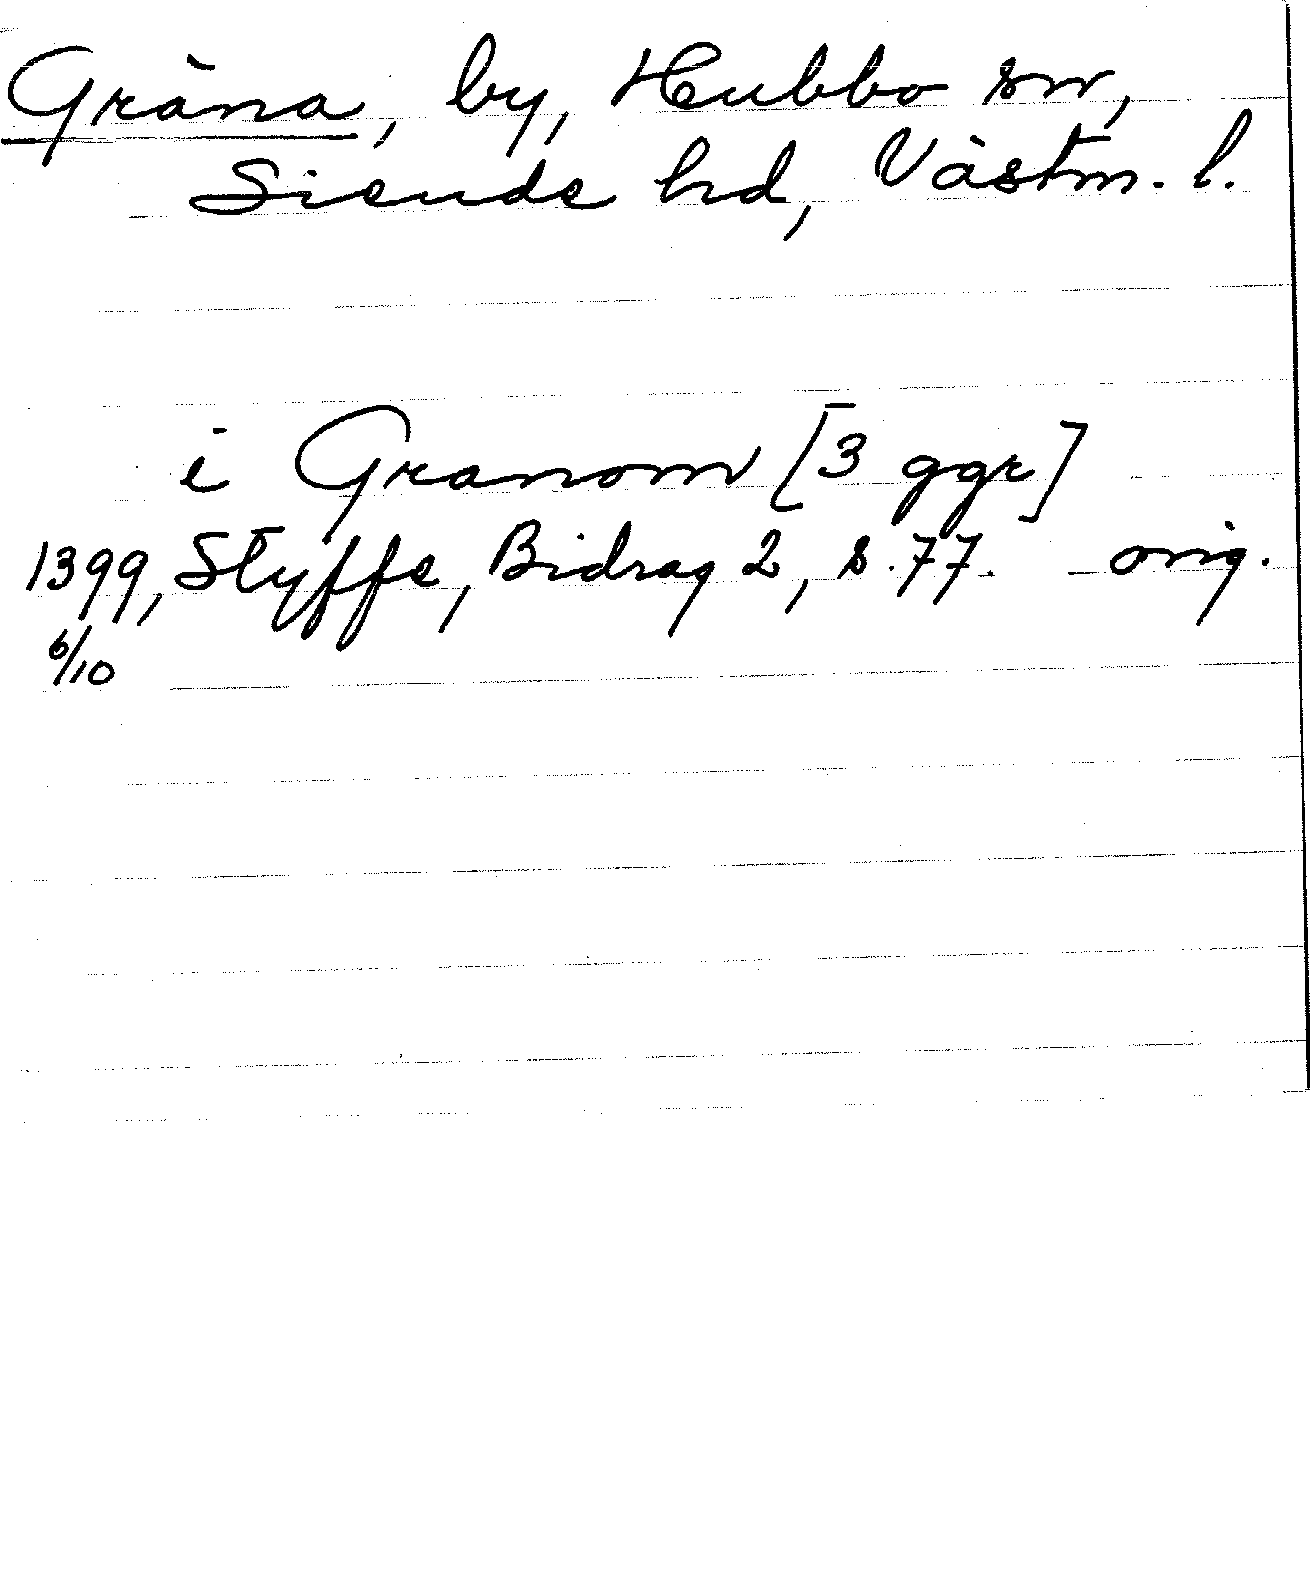 Gräna, by, Hubbo sn,
Siende hd, Västm. l.
i Granom [3 ggr]
1399, Styffe, Bidrag 2, s. 77. orig.
6/10